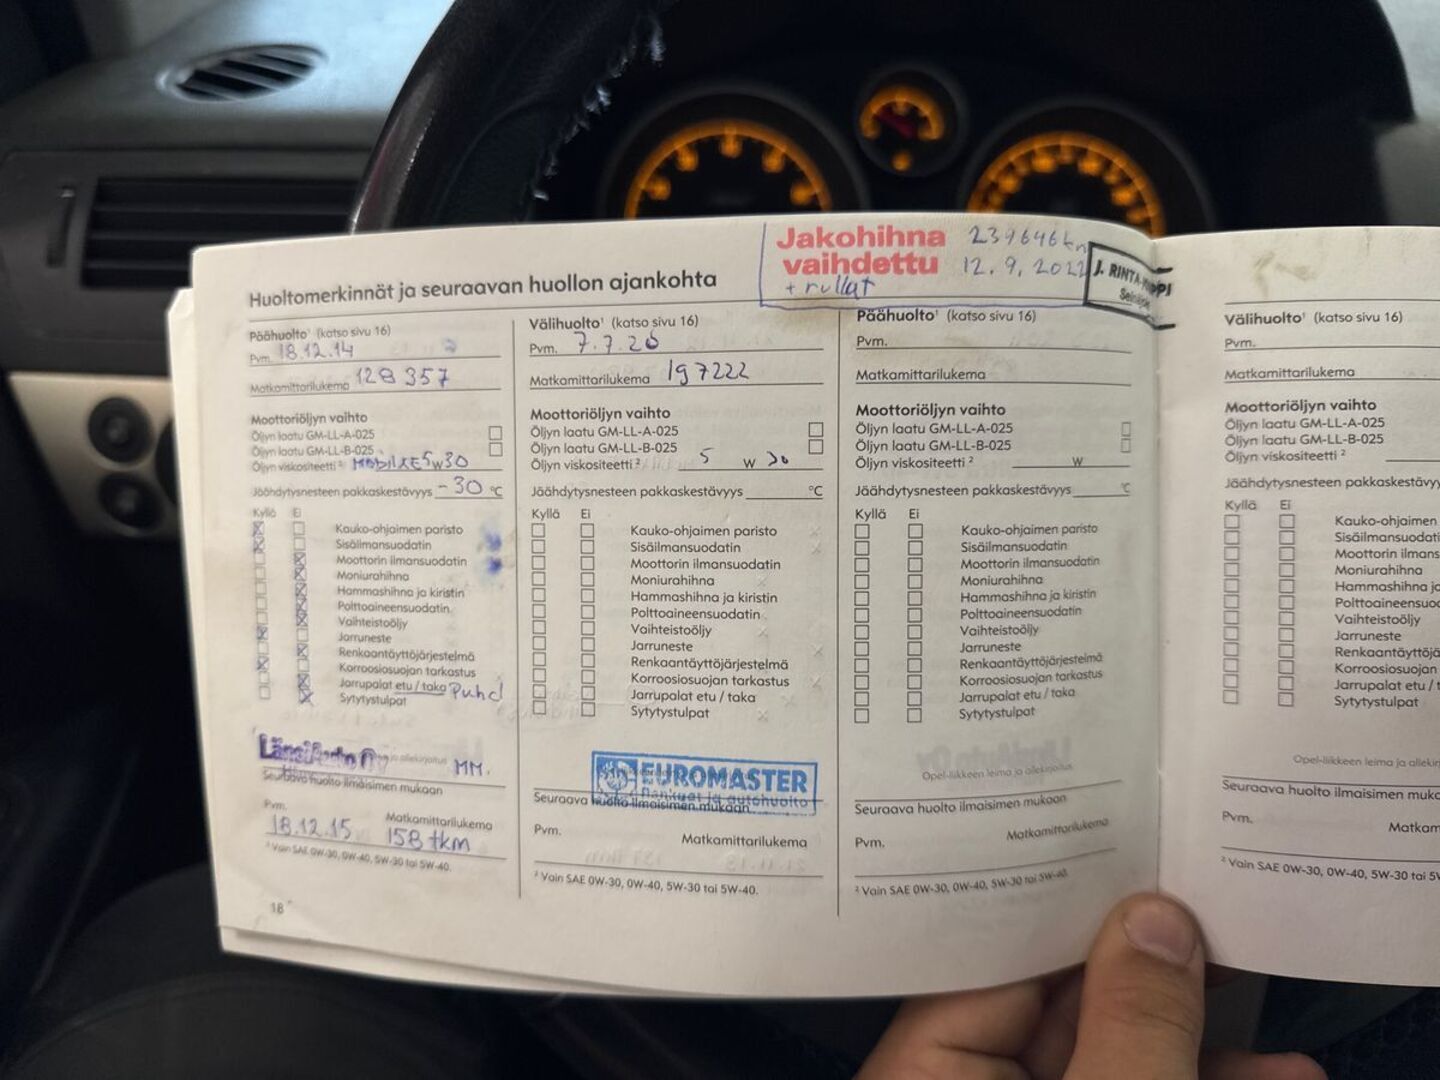 Huoltomerkinnät ja seuraavan huollon ajankohta
Jakohihna
vaihdettu
+ rullat
239646km
12.9.2022
J. RINTA-
Päähuolto¹ (katso sivu 16)
Pvm. 18.12.14
Matkamittarilukema 128 357
Moottoriöljyn vaihto
Öljyn laatu GM-LL-A-025
Öljyn laatu GM-LL-B-025
Öljyn viskositeetti ² 5W30
Jäähdytysnesteen pakkaskestävyys -30 °C
Kyllä Ei
Kauko-ohjaimen paristo
Sisäilmansuodatin
Moottorin ilmansuodatin
Moniurahihna
Hammashihna ja kiristin
Polttoaineensuodatin
Vaihteistoöljy
Jarruneste
Renkaantäyttöjärjestelmä
Korroosiosuojan tarkastus
Jarrupalat etu / taka Puhd
Sytytystulpat
LänsiAuto Oy
ja allekirjoitus MM.
Seuraava huolto ilmaisimen mukaan
Pvm. Matkamittarilukema
18.12.15 158 tkm
² Vain SAE 0W-30, 0W-40, 5W-30 tai 5W-40.
18
Välihuolto¹ (katso sivu 16)
Pvm. 7.7.20
Matkamittarilukema 197222
Moottoriöljyn vaihto
Öljyn laatu GM-LL-A-025
Öljyn laatu GM-LL-B-025
Öljyn viskositeetti ² 5 W 30
Jäähdytysnesteen pakkaskestävyys °C
Kyllä Ei
Kauko-ohjaimen paristo
Sisäilmansuodatin
Moottorin ilmansuodatin
Moniurahihna
Hammashihna ja kiristin
Polttoaineensuodatin
Vaihteistoöljy
Jarruneste
Renkaantäyttöjärjestelmä
Korroosiosuojan tarkastus
Jarrupalat etu / taka
Sytytystulpat
EUROMASTER
Renkaat ja autohuolto
Seuraava huolto ilmaisimen mukaan
Pvm. Matkamittarilukema
² Vain SAE 0W-30, 0W-40, 5W-30 tai 5W-40.
Päähuolto¹ (katso sivu 16)
Pvm.
Matkamittarilukema
Moottoriöljyn vaihto
Öljyn laatu GM-LL-A-025
Öljyn laatu GM-LL-B-025
Öljyn viskositeetti ² W
Jäähdytysnesteen pakkaskestävyys °C
Kyllä Ei
Kauko-ohjaimen paristo
Sisäilmansuodatin
Moottorin ilmansuodatin
Moniurahihna
Hammashihna ja kiristin
Polttoaineensuodatin
Vaihteistoöljy
Jarruneste
Renkaantäyttöjärjestelmä
Korroosiosuojan tarkastus
Jarrupalat etu / taka
Sytytystulpat
Opel-liikkeen leima ja allekirjoitus
Seuraava huolto ilmaisimen mukaan
Pvm. Matkamittarilukema
² Vain SAE 0W-30, 0W-40, 5W-30 tai 5W-40.
Välihuolto¹ (katso sivu 16)
Pvm.
Matkamittarilukema
Moottoriöljyn vaihto
Öljyn laatu GM-LL-A-025
Öljyn laatu GM-LL-B-025
Öljyn viskositeetti ²
Jäähdytysnesteen pakkaskestävyy
Kyllä Ei
Kauko-ohjaimen
Sisäilmansuodati
Moottorin ilmans
Moniurahihna
Hammashihna ja
Polttoaineensuo
Vaihteistoöljy
Jarruneste
Renkaantäyttöjä
Korroosiosuojan
Jarrupalat etu / t
Sytytystulpat
Opel-liikkeen leima ja allekir
Seuraava huolto ilmaisimen muka
Pvm. Matkam
² Vain SAE 0W-30, 0W-40, 5W-30 tai 5W